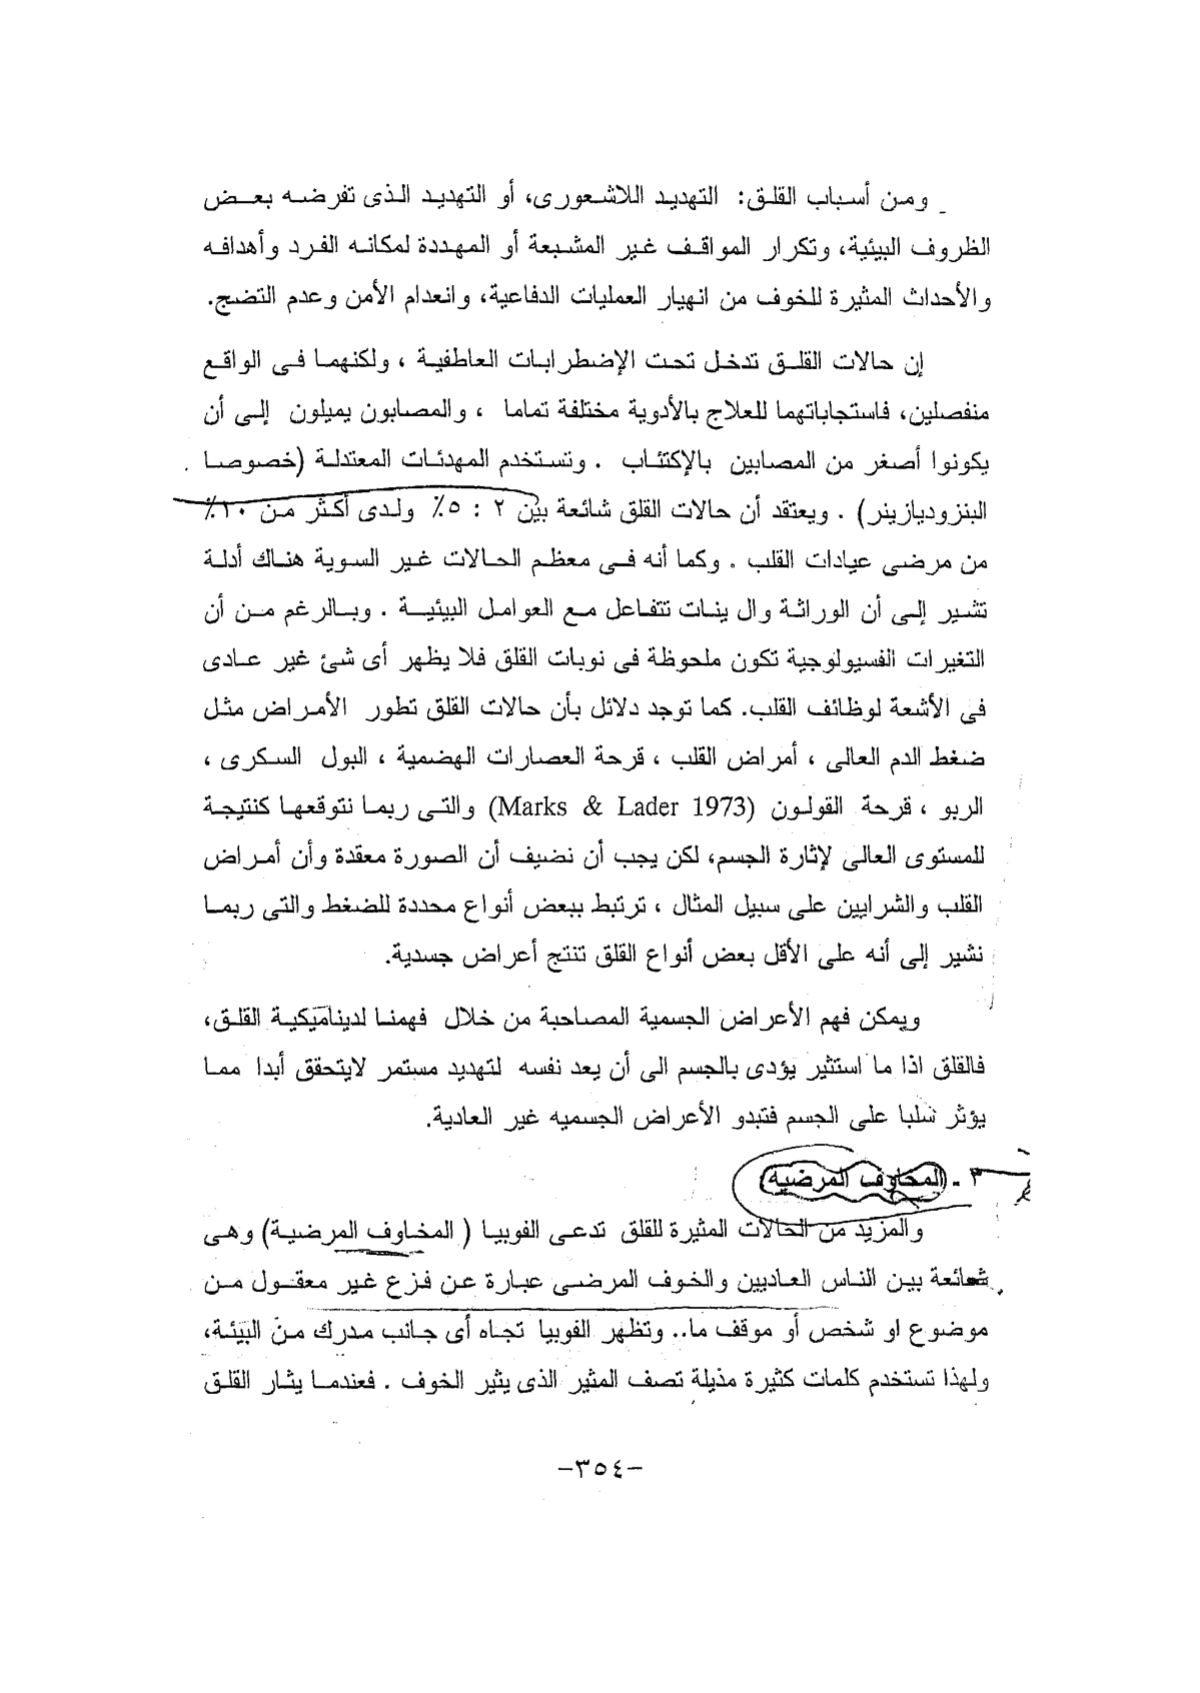 ومن أسباب القلق: التهديد اللاشعورى، أو التهديد الذى تفرضه بعض
الظروف البيئية، وتكرار المواقف غير المشبعة أو المهددة لمكانه الفرد وأهدافه
والأحداث المثيرة للخوف من انهيار العمليات الدفاعية، وانعدام الأمن وعدم النضج.
إن حالات القلق تدخل تحت الإضطرابات العاطفية ، ولكنهما فى الواقع
منفصلين، فاستجاباتهما للعلاج بالأدوية مختلفة تماما ، والمصابون يميلون إلى أن
يكونوا أصغر من المصابين بالإكتئاب . وتستخدم المهدئات المعتدلة (خصوصا
البنزوديازينر) . ويعتقد أن حالات القلق شائعة بين ٢ : ٥٪ ولدى أكثر من ١٠٪
من مرضى عيادات القلب . وكما أنه فى معظم الحالات غير السوية هناك أدلة
تشير إلى أن الوراثة وال ينات تتفاعل مع العوامل البيئية . وبالرغم من أن
التغيرات الفسيولوجية تكون ملحوظة فى نوبات القلق فلا يظهر أى شئ غير عادى
فى الأشعة لوظائف القلب. كما توجد دلائل بأن حالات القلق تطور الأمراض مثل
ضغط الدم العالى ، أمراض القلب ، قرحة العصارات الهضمية ، البول السكرى ،
الربو ، قرحة القولون (Marks & Lader 1973) والتى ربما نتوقعها كنتيجة
للمستوى العالى لإثارة الجسم، لكن يجب أن نضيف أن الصورة معقدة وأن أمراض
القلب والشرايين على سبيل المثال ، ترتبط ببعض أنواع محددة للضغط والتى ربما
نشير إلى أنه على الأقل بعض أنواع القلق تنتج أعراض جسدية.
ويمكن فهم الأعراض الجسمية المصاحبة من خلال فهمنا لديناميكية القلق،
فالقلق اذا ما استثير يؤدى بالجسم الى أن يعد نفسه لتهديد مستمر لايتحقق أبدا مما
يؤثر سلبا على الجسم فتبدو الأعراض الجسميه غير العادية.
٣ - (المخاوف المرضية)
والمزيد من الحالات المثيرة للقلق تدعى الفوبيا ( المخاوف المرضية) وهى
شائعة بين الناس العاديين والخوف المرضى عبارة عن فزع غير معقول من
موضوع او شخص أو موقف ما.. وتظهر الفوبيا تجاه أى جانب مدرك من البيئة،
ولهذا تستخدم كلمات كثيرة مذيلة تصف المثير الذى يثير الخوف . فعندما يثار القلق
-٣٥٤-